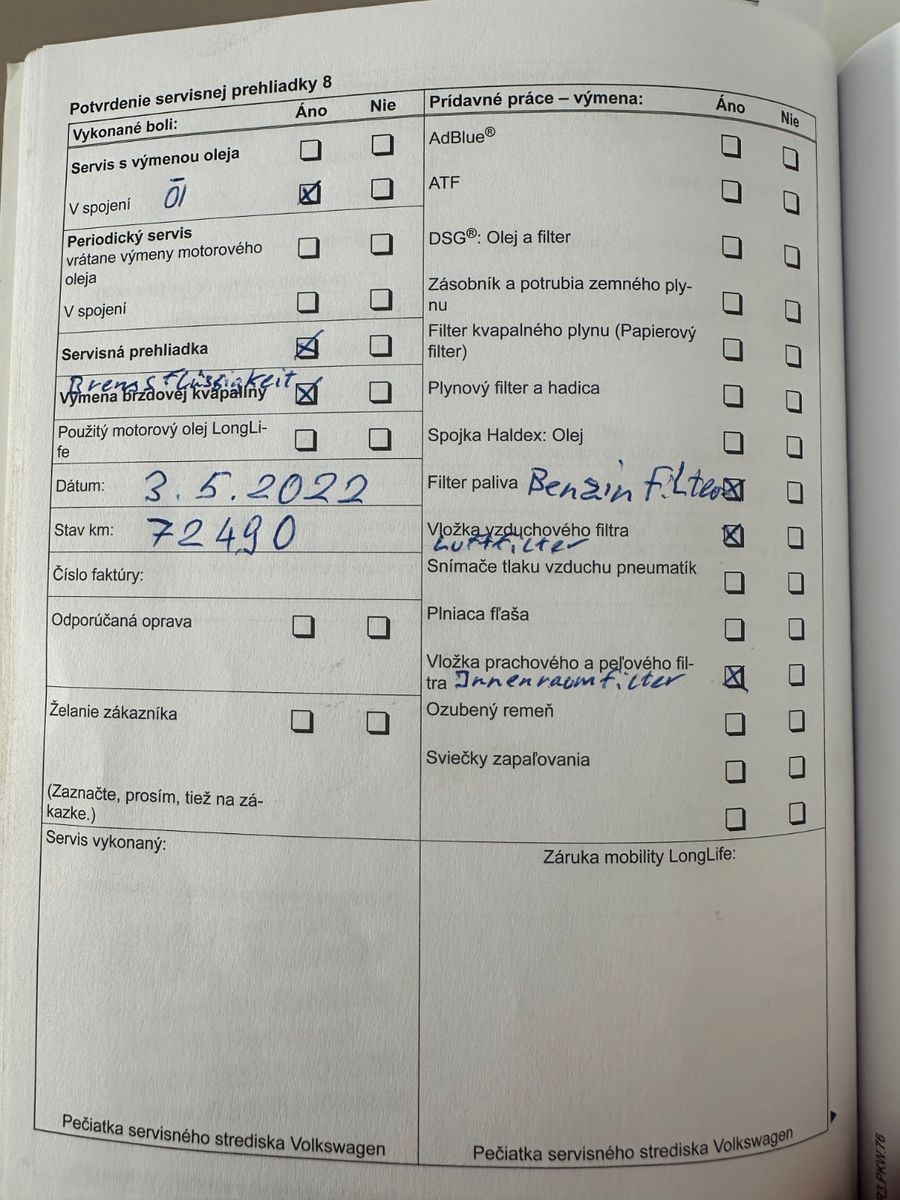 Potvrdenie servisnej prehliadky 8
Vykonané boli: Áno Nie
Servis s výmenou oleja
V spojení Öl
Periodický servis
vrátane výmeny motorového
oleja
V spojení
Servisná prehliadka
Bremsflüssigkeit
Výmena brzdovej kvapaliny
Použitý motorový olej LongLi-
fe
Dátum: 3.5.2022
Stav km: 72490
Číslo faktúry:
Odporúčaná oprava
Želanie zákazníka
(Zaznačte, prosím, tiež na zá-
kazke.)
Servis vykonaný:
Pečiatka servisného strediska Volkswagen
Prídavné práce – výmena: Áno Nie
AdBlue®
ATF
DSG®: Olej a filter
Zásobník a potrubia zemného ply-
nu
Filter kvapalného plynu (Papierový
filter)
Plynový filter a hadica
Spojka Haldex: Olej
Filter paliva Benzin filter
Vložka vzduchového filtra
Luftfilter
Snímače tlaku vzduchu pneumatík
Plniaca fľaša
Vložka prachového a peľového fil-
tra Innenraumfilter
Ozubený remeň
Sviečky zapaľovania
Záruka mobility LongLife:
Pečiatka servisného strediska Volkswagen